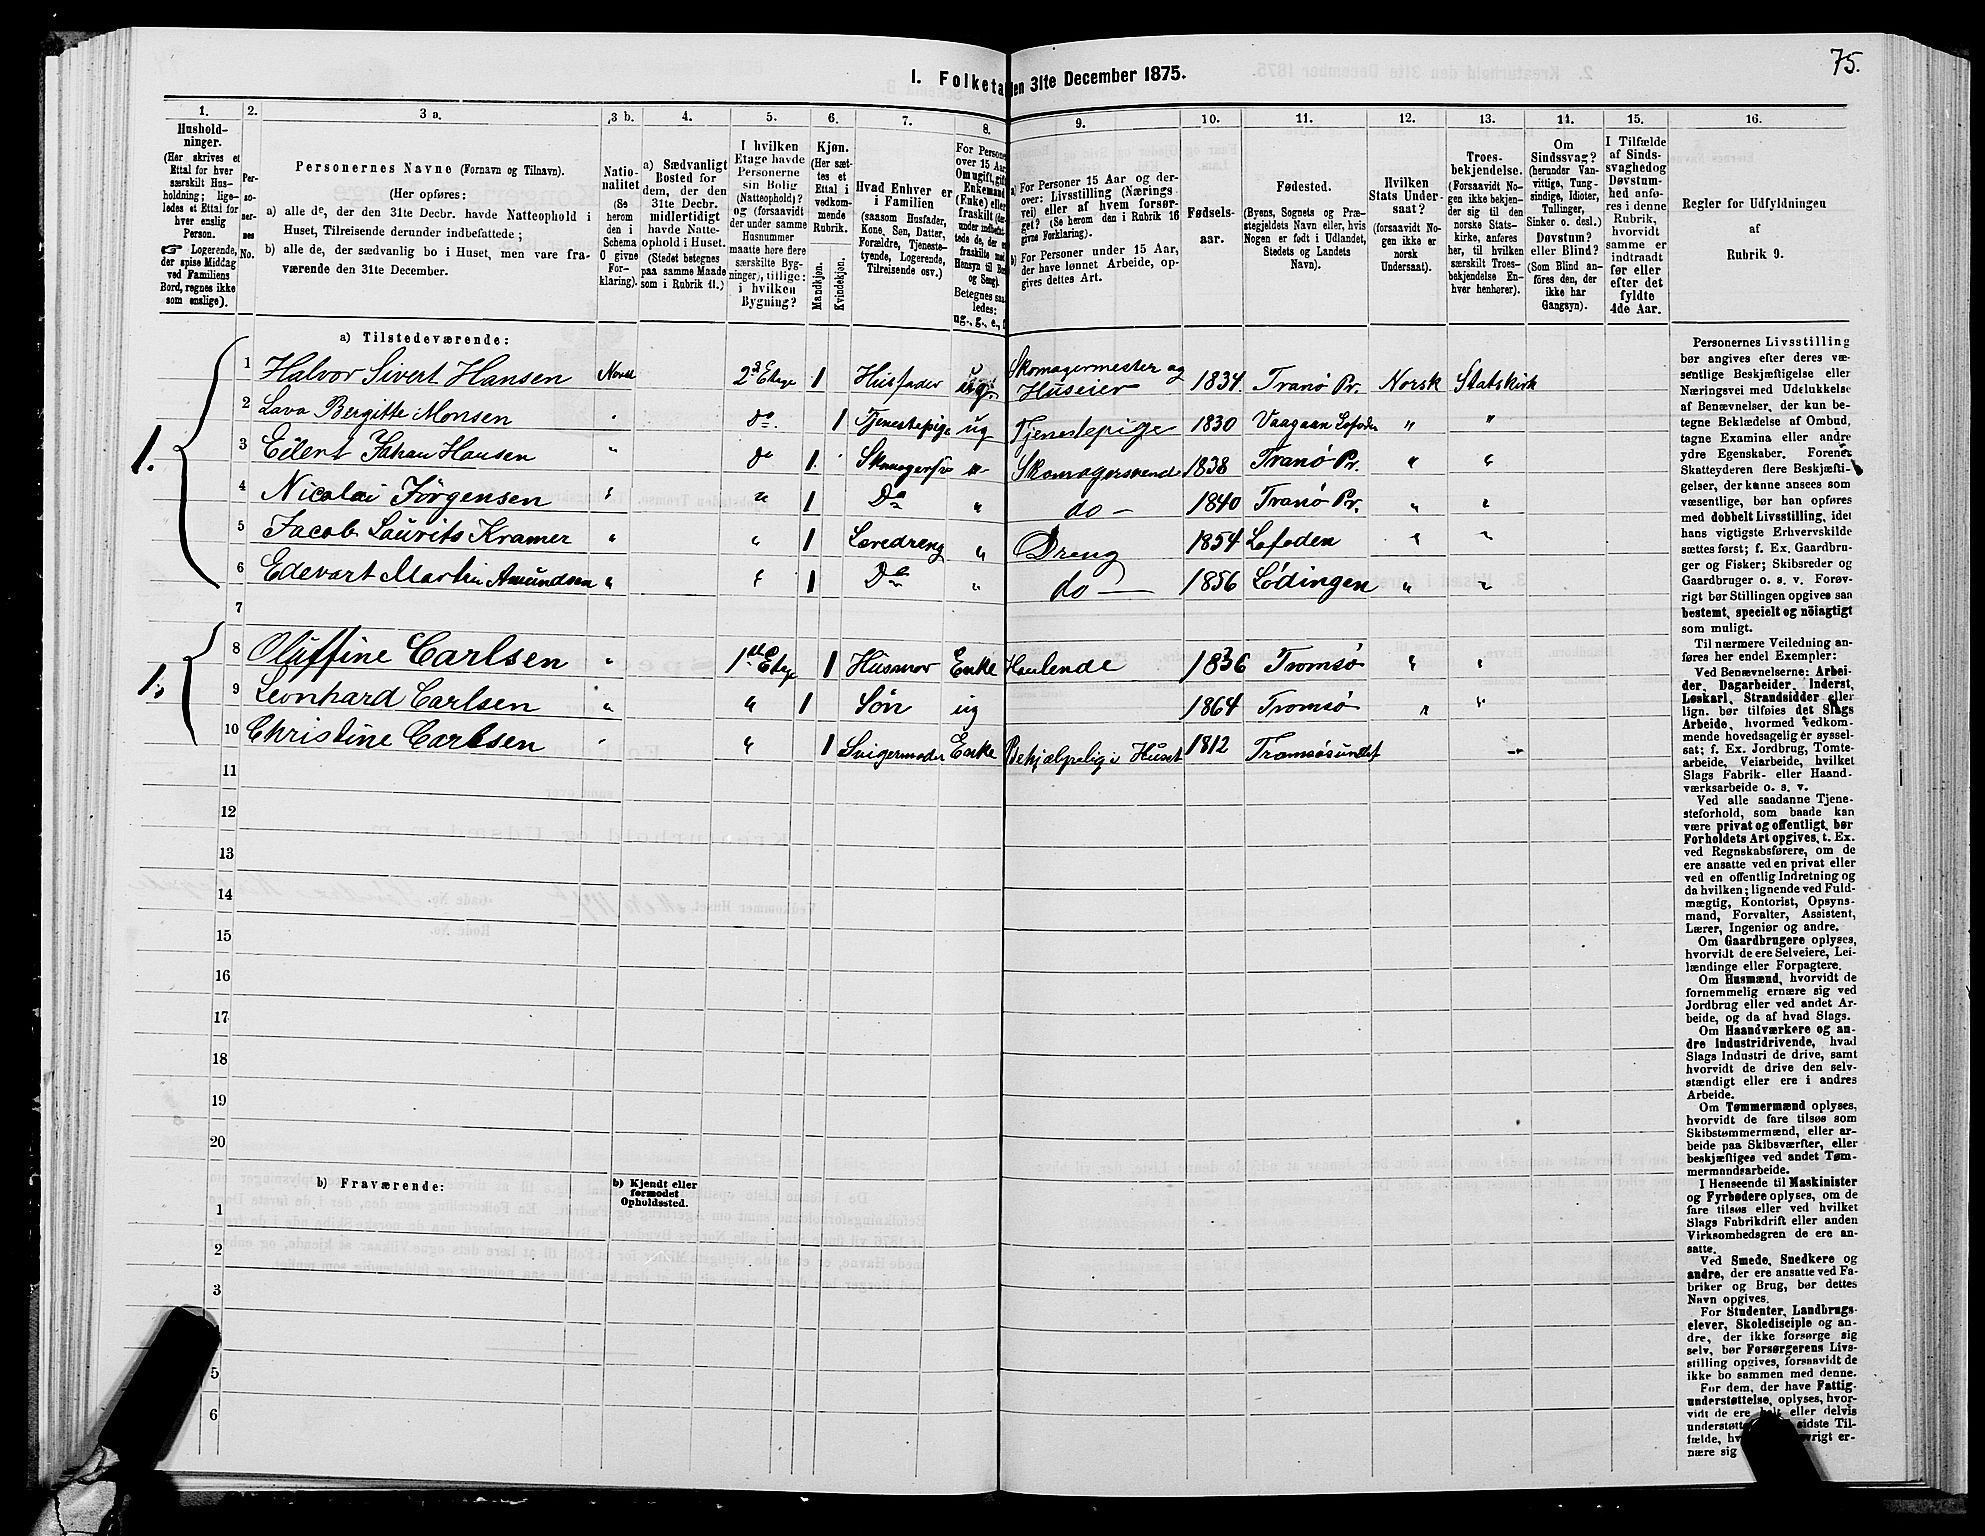 75.
1. Folketæ
len 31te December 1875.
1. 2. 3 a. 3 b. 4. 5. 6. 7. 8. 9. 10. 11. 12. 13. 14. 15. 16.
Hushold-
ninger.
(Her skrives et
Ettal for hver
særskilt Hus-
holdning; lige-
ledes et Ettal for
hver enslig
Person.
☞ Logerende,
der spise Middag
ved Familiens
Bord, regnes ikke
som enslige).
Per-
so-
ner-
nes
No.
Personernes Navne (Fornavn og Tilnavn).
(Her opføres:
a) alle de, der den 31te Decbr. havde Natteophold i
Huset, Tilreisende derunder indbefattede;
b) alle de, der sædvanlig bo i Huset, men vare fra-
værende den 31te December.
Natio-
nalitet
(Se
herom
den i
Schema
O givne
For-
klaring).
a) Sædvanligt
Bosted for
dem, der den
31te Decbr.
midlertidigt
havde Natte-
ophold i Huset.
(Stedet betegnes
paa samme Maade
som i Rubrik 11.)
I hvilken
Etage havde
Personerne
sin Bolig
(Natteophold)?
og (forsaavidt
der under samme
Husnummer
maatte høre flere
særskilte Byg-
ninger), tillige:
i hvilken
Bygning?
Kjøn.
(Her sæt-
tes et
Ettal i
vedkom-
mende
Rubrik.
Mandkjøn.
Kvindekjøn.
Hvad Enhver er
i Familien
(saasom Husfader,
Kone, Søn, Datter,
Forældre, Tjeneste-
tyende, Logerende,
Tilreisende osv.)
For Persone
over 15 Aar
Om ugift, gift
Enkemand
(Enke) eller
fraskilt (der-
under indbefat-
tede de, der e
fraskilte med
Hensyn til Bo
og Seng).
Betegnes saa
ledes:
ug., g., e., f
a) For Personer 15 Aar og der-
over: Livsstilling (Nærings
vei) eller af hvem forsør-
get? (Se herom den i Rubrik 16
givne Forklaring).
b) For Personer under 15 Aar,
der have lønnet Arbeide, op-
gives dettes Art.
Fødsels-
aar.
Fødested.
(Byens, Sognets og Præ-
stegjeldets Navn eller, hvis
Nogen er født i Udlandet,
Stedets og Landets
Navn).
Hvilken
Stats Under-
saat?
(forsaavidt No-
gen ikke er
norsk
Undersaat).
Troes-
bekjendelse.
(Forsaavidt No-
gen ikke bekjen-
der sig til den
norske Stats-
kirke, anføres
her, til hvilken
særskilt Troes-
bekjendelse En-
hver henhører).
Om
Sindssvag?
(herunder Van-
vittige, Tung-
sindige, Idioter,
Tullinger,
Sinker o. desl.)
Døvstum?
eller Blind?
(Som Blind an-
føres den, der
ikke har
Gangsyn).
I Tilfælde
af Sinds-
svaghed og
Døvstum-
hed anfø-
res i denne
Rubrik,
hvorvidt
samme er
indtraadt
før eller
efter det
fyldte
4de Aar.
Regler for Udfyldningen
af
Rubrik 9.
a) Tilstedeværende:
1. 1 Halvor Sivert Hansen Norsk 2den Etage 1 Husfader ug. Skomagermester og Huseier 1834. Tranø Pr. Norsk Statskirk
2 Lava Bergitte Monsen " Do. 1 Tjenestepige ug Tjenestepige 1830 Vaagaan Lofoden " "
3 Eilert Johan Hansen " Do 1. Skomagersv " Skomagersvend 1838 Tranø Pr. " "
4 Nicolai Jørgensen " " 1 Do " do — 1840 Tranø Pr. " "
5 Jacob Laurits Kramer " " 1 Læredreng " Dreng 1854 Lofoden " "
6 Edevart Martin Amundsen " " 1 Do " do — 1856 Lødingen " "
7
1. 8 Oluffine Carlsen " 1ste Etage 1 Husmor Enke 1836 Tromsø " "
9 Leonhard Carlsen " " 1 Søn ug 1864 Tromsø " "
10 Christine Carlsen " " 1 Svigermoder Enke Behjælpelig i Huset 1812 Tromsøsundet "
11
12
13
14
15
16
17
18
19
20
b) Fraværende:
b) Kjendt eller
formodet
Opholdssted.
1
2
3
5
6
Personernes Livsstilling
bør angives efter deres væ-
sentlige Beskjæftigelse eller
Næringsvei med Udelukkelse
af Benævnelser, der kun be-
tegne Beklædelse af Ombud,
tagne Examina eller andre
ydre Egenskaber. Forener
Skatteyderen flere Beskjæfti-
gelser, der kunne ansees som
væsentlige, bør han opføres
med dobbelt Livsstilling, idet
hans vigtigste Erhvervskilde
sættes først; f. Ex. Gaardbru-
ger og Fisker; Skibsreder og
Gaardbruger o. s. v. Forøv-
rigt bør Stillingen opgives saa
bestemt, specielt og nöiagtigt
som muligt.
Til nærmere Veiledning an-
føres her endel Exempler:
Ved Benævnelserne: Arbei-
der, Dagarbeider, Inderst,
Løskarl, Strandsidder eller
lign. bør tilføies det Slags
Arbeide, hvormed vedkom-
mende hovedsagelig er syssel-
sat; f. Ex. Jordbrug, Tomte-
arbeide, Veiarbeide, hvilket
Slags Fabrik- eller Haand-
værksarbeide o. s. v.
Ved alle saadanne Tjene-
steforhold, som baade kan
være privat og offentligt, bør
Forholdets Art opgives, t. Ex.
ved Regnskabsførere, om de
ere ansatte ved en privat eller
ved en offentlig Indretning og
da hvilken; lignende ved Fuld-
mægtig, Kontorist, Opsyns-
mand, Forvalter, Assistent,
Lærer, Ingeniør og andre.
Om Gaardbrugere oplyses,
hvorvidt de ere Selveiere, Lei-
lændinge eller Forpagtere.
Om Husmænd, hvorvidt de
fornemmelig ernære sig ved
Jordbrug eller ved andet Ar-
beide, og da af hvad Slags.
Om Haandværkere og an-
dre Industridrivende, hvad
Slags Industri de drive, samt
hvorvidt de drive den selv-
stændigt eller ere i andres
Arbeide.
Om Tømmermænd oplyses,
hvorvidt de fare tilsøs som
Skibstømmermænd, eller ar-
beide paa Skibsværfter, eller
beskjæftiges ved andet Tøm-
mermandsarbeide.
I Henseende til Maskinister
og Fyrbødere oplyses, om de
fare tilsøs eller ved hvilket
Slags Fabrikdrift eller anden
Virksomhedsgren de ere an-
satte.
Ved Smede, Snedkere og
andre, der ere ansatte ved Fa-
briker og Brug, bør dettes
Navn opgives.
For Studenter, Landbrugs-
elever, Skoledisciple og an-
dre, der ikke forsørge sig
selv, bør Forsørgerens Livs-
stilling opgives, forsaavidt de
ikke bo sammen med denne.
For dem, der have Fattig-
understøttelse, oplyses, hvor-
vidt de ere helt eller delvis
understøtt sidste Til-
fælde, hv øvrigt er-
nære sig